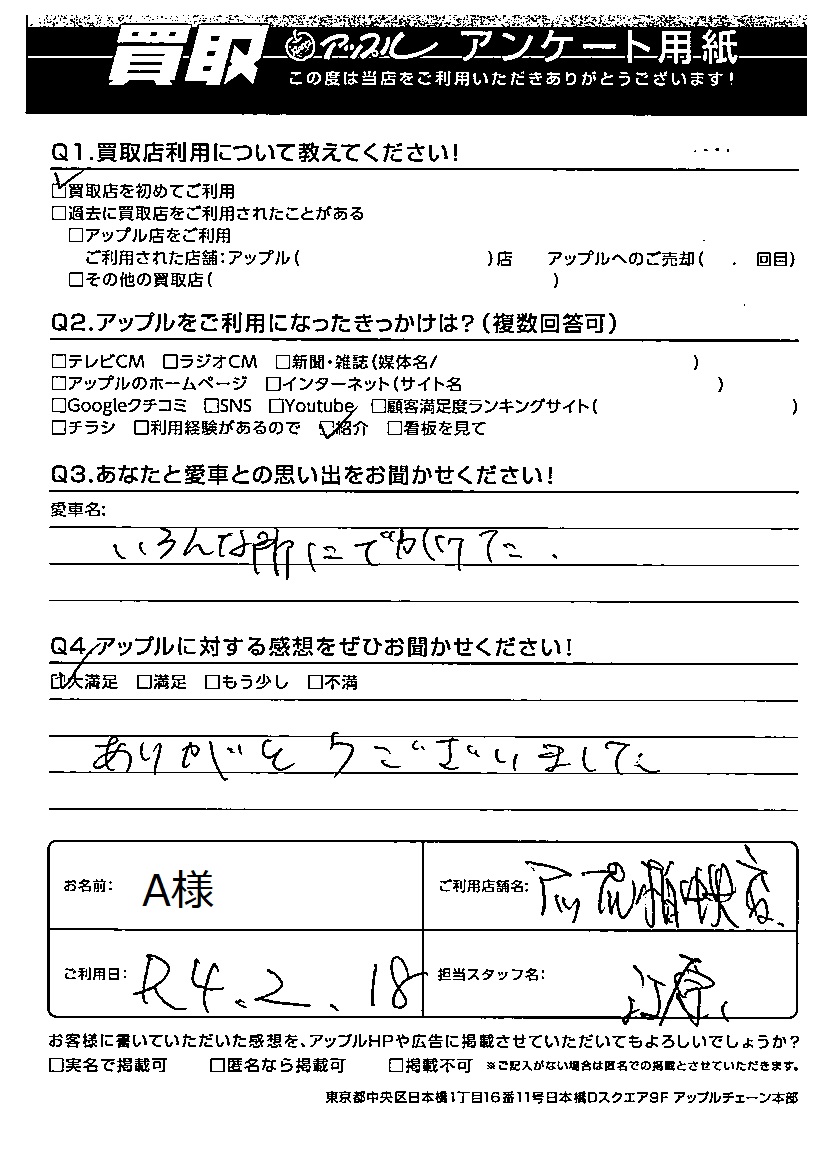 買取 アップル アンケート用紙
この度は当店をご利用いただきありがとうございます!
Q1.買取店利用について教えてください!
☑買取店を初めてご利用
□過去に買取店をご利用されたことがある
□アップル店をご利用
ご利用された店舗:アップル( )店 アップルへのご売却( . 回目)
□その他の買取店( )
Q2.アップルをご利用になったきっかけは?(複数回答可)
□テレビCM □ラジオCM □新聞・雑誌(媒体名/ )
□アップルのホームページ □インターネット(サイト名 )
□Googleクチコミ □SNS □Youtube □顧客満足度ランキングサイト( )
□チラシ □利用経験があるので ☑紹介 □看板を見て
Q3.あなたと愛車との思い出をお聞かせください!
愛車名:
いろんな所にでかけた.
Q4.アップルに対する感想をぜひお聞かせください!
☑大満足 □満足 □もう少し □不満
ありがとうございました
お名前: A様 ご利用店舗名: アップル柏中央店
ご利用日: R4.2.18 担当スタッフ名: 江原
お客様に書いていただいた感想を、アップルHPや広告に掲載させていただいてもよろしいでしょうか?
□実名で掲載可 □匿名なら掲載可 □掲載不可 ※ご記入がない場合は匿名での掲載とさせていただきます。
東京都中央区日本橋1丁目16番11号日本橋Dスクエア9F アップルチェーン本部